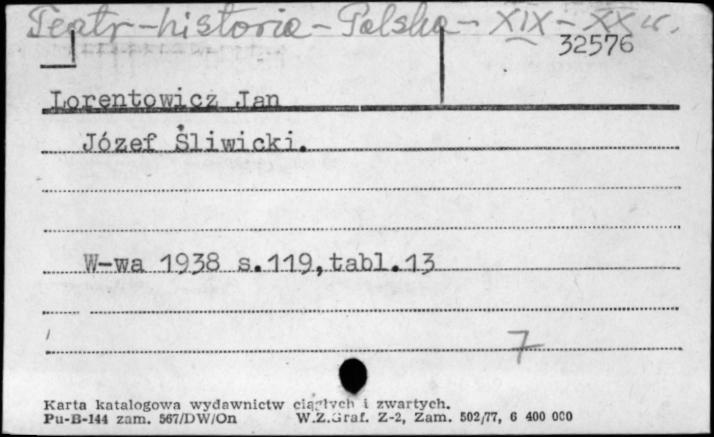 Teatr - historia - Polska - XIX - XX w.
32576
Lorentowicz Jan
Józef Śliwicki.
W-wa 1938 s.119,tabl.13
7
Karta katalogowa wydawnictw ciągłych i zwartych.
Pu-B-144 zam. 567/DW/On W.Z.Graf. Z-2, Zam. 502/77, 6 400 000